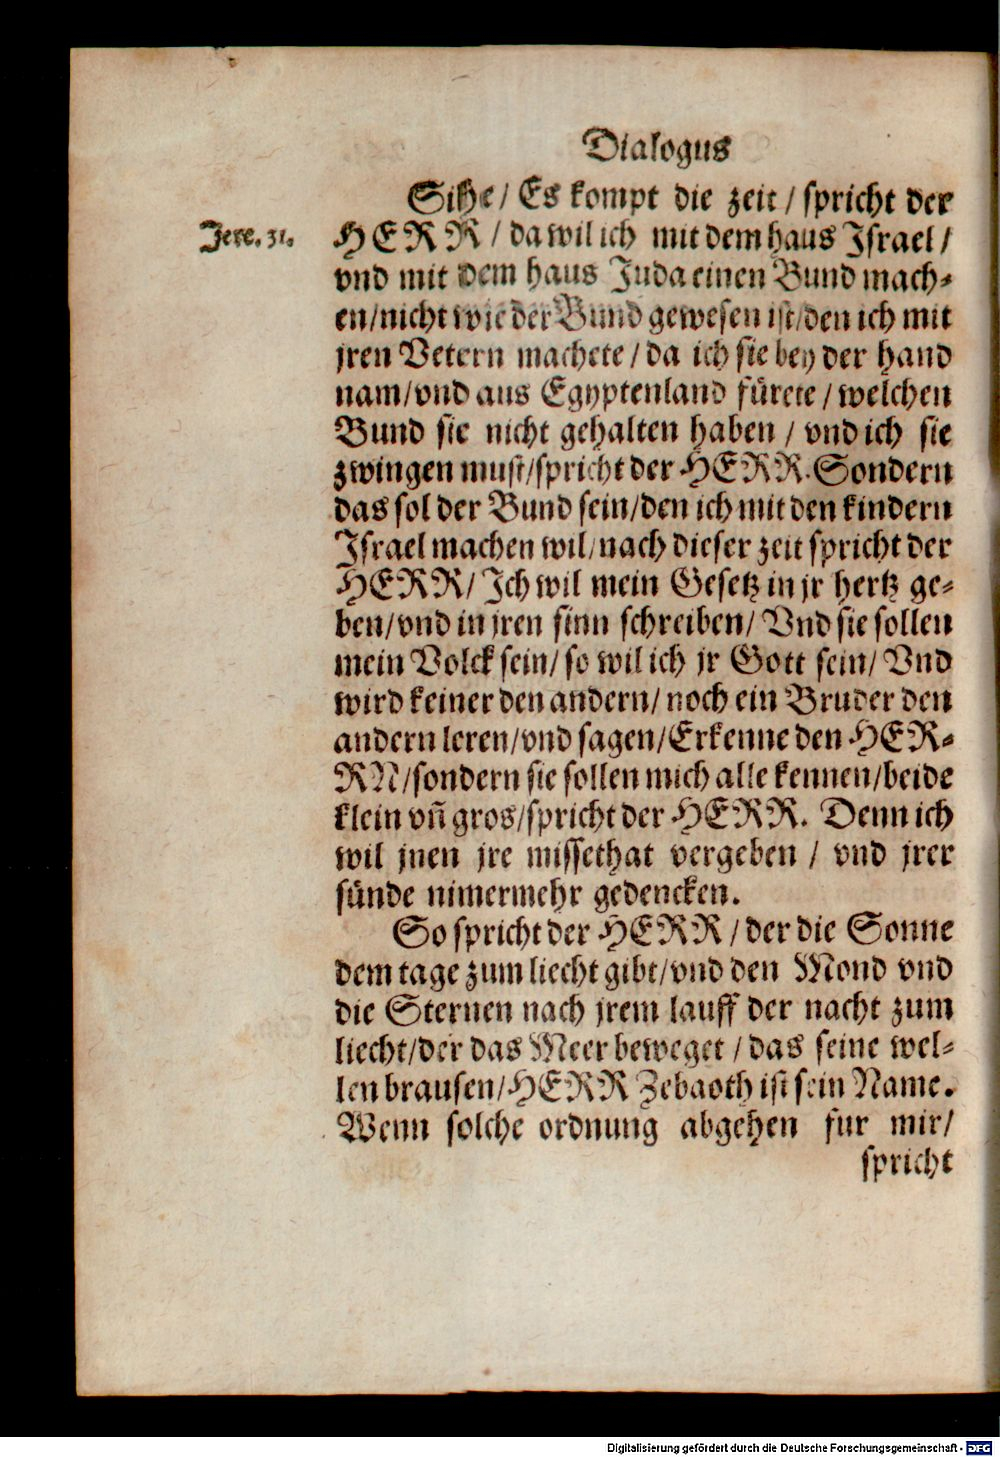 Dialogus
Sihe/ Es kompt die zeit/ spricht der
Jere. 31.
HERR/ da wil ich mit dem haus Israel/
vnd mit dem haus Juda einen Bund mach-
en/nicht wie der Bund gewesen ist/den ich mit
jren Vetern machete/ da ich sie bey der hand
nam/vnd aus Egyptenland fürete/ welchen
Bund sie nicht gehalten haben/ vnd ich sie
zwingen must/spricht der HERR. Sondern
das sol der Bund sein/den ich mit den kindern
Israel machen wil/nach dieser zeit spricht der
HERR/ Ich wil mein Gesetz in jr hertz ge-
ben/vnd in jren sinn schreiben/ Vnd sie sollen
mein Volck sein/ so wil ich jr Gott sein/ Vnd
wird keiner den andern/ noch ein Bruder den
andern leren/vnd sagen/Erkenne den HER-
RN/sondern sie sollen mich alle kennen/beide
klein vñ gros/spricht der HERR. Denn ich
wil jnen jre missethat vergeben/ vnd jrer
sünde nimermehr gedencken.
So spricht der HERR/ der die Sonne
dem tage zum liecht gibt/vnd den Mond vnd
die Sternen nach jrem lauff der nacht zum
liecht/der das Meer beweget/ das seine wel-
len brausen/HERR Zebaoth ist sein Name.
Wenn solche ordnung abgehen fur mir/
spricht
Digitalisierung gefördert durch die Deutsche Forschungsgemeinschaft - DFG